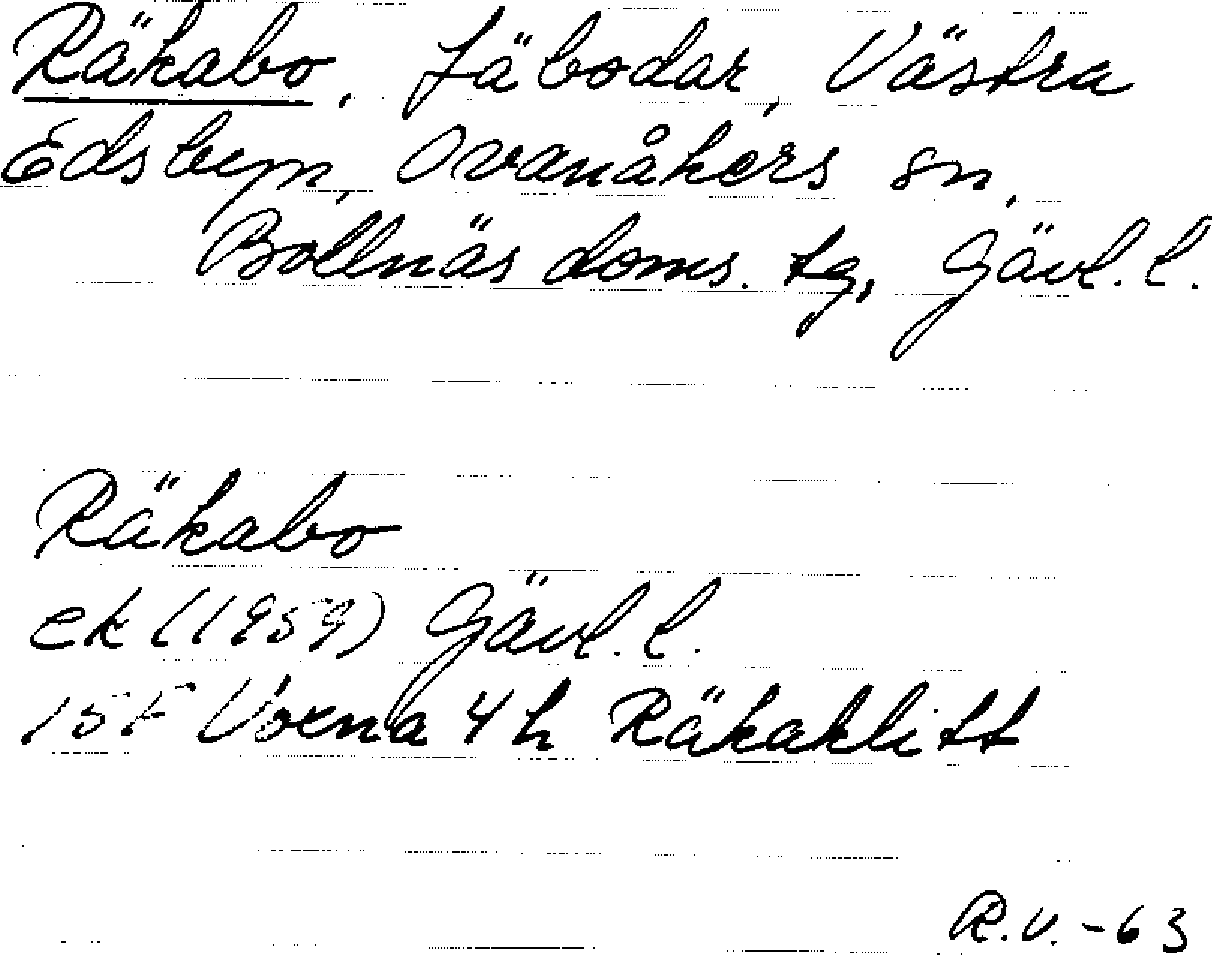 Räkabo, fäbodar, Västra
Edsbyn, Ovanåkers sn,
Bollnäs doms. tg, Gävl. l.
Räkabo
ek (1959) Gävl. l.
15F Voxna 4h Räkaklitt
R.V. -63